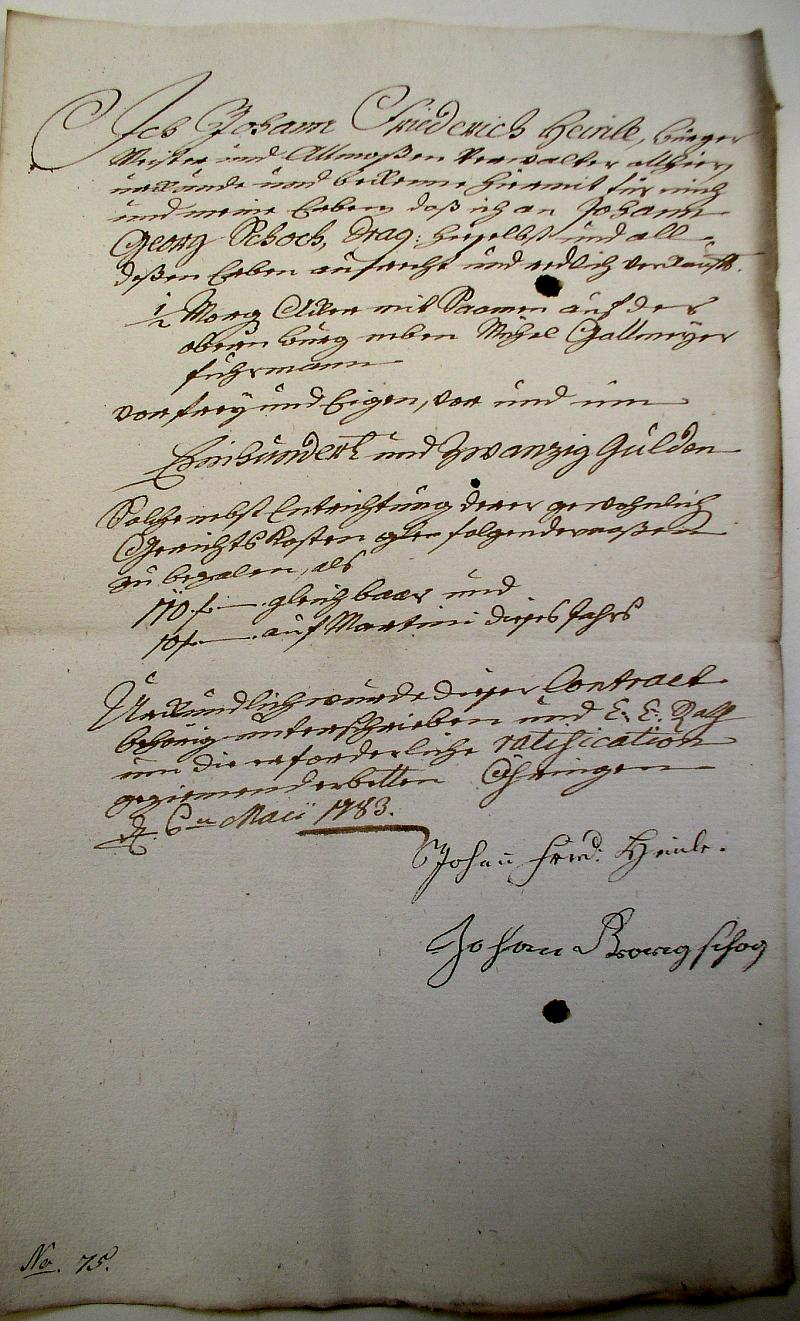 Ich Johann Friederich Heinle, Burger
Meister und Allmoßen Verwalter allhier,
urkunde und bekenne hiermit für mich
und meine Erben, daß ich an Johann
Georg Schoch, Drag: hieselbst und all
deßen Erben aufrecht und redlich verkauft.
1/2 Morg Acker mit Saamen auf der
obern Burg neben Michel Gallmeyer
fuhrmann
vor frey und Eigen, vor und um
Einhundert und Zwanzig Gulden
Solche nebst Entrichtung derer gewohnlich
Gerichts Kosten folgendermaßen
zu bezalen, als
110 f. — gleich baar und
10 f. — auf Martini dießes Jahrs
Urkundlich wurde dießer Contract
behörig unterschrieben und E. E. Rath
um die erforderliche ratification
geziemend erbetten Öhringen
d. 6ten Maii 1783.
Johann Frid. Heinle.
Johan Georg schog
No. 75.